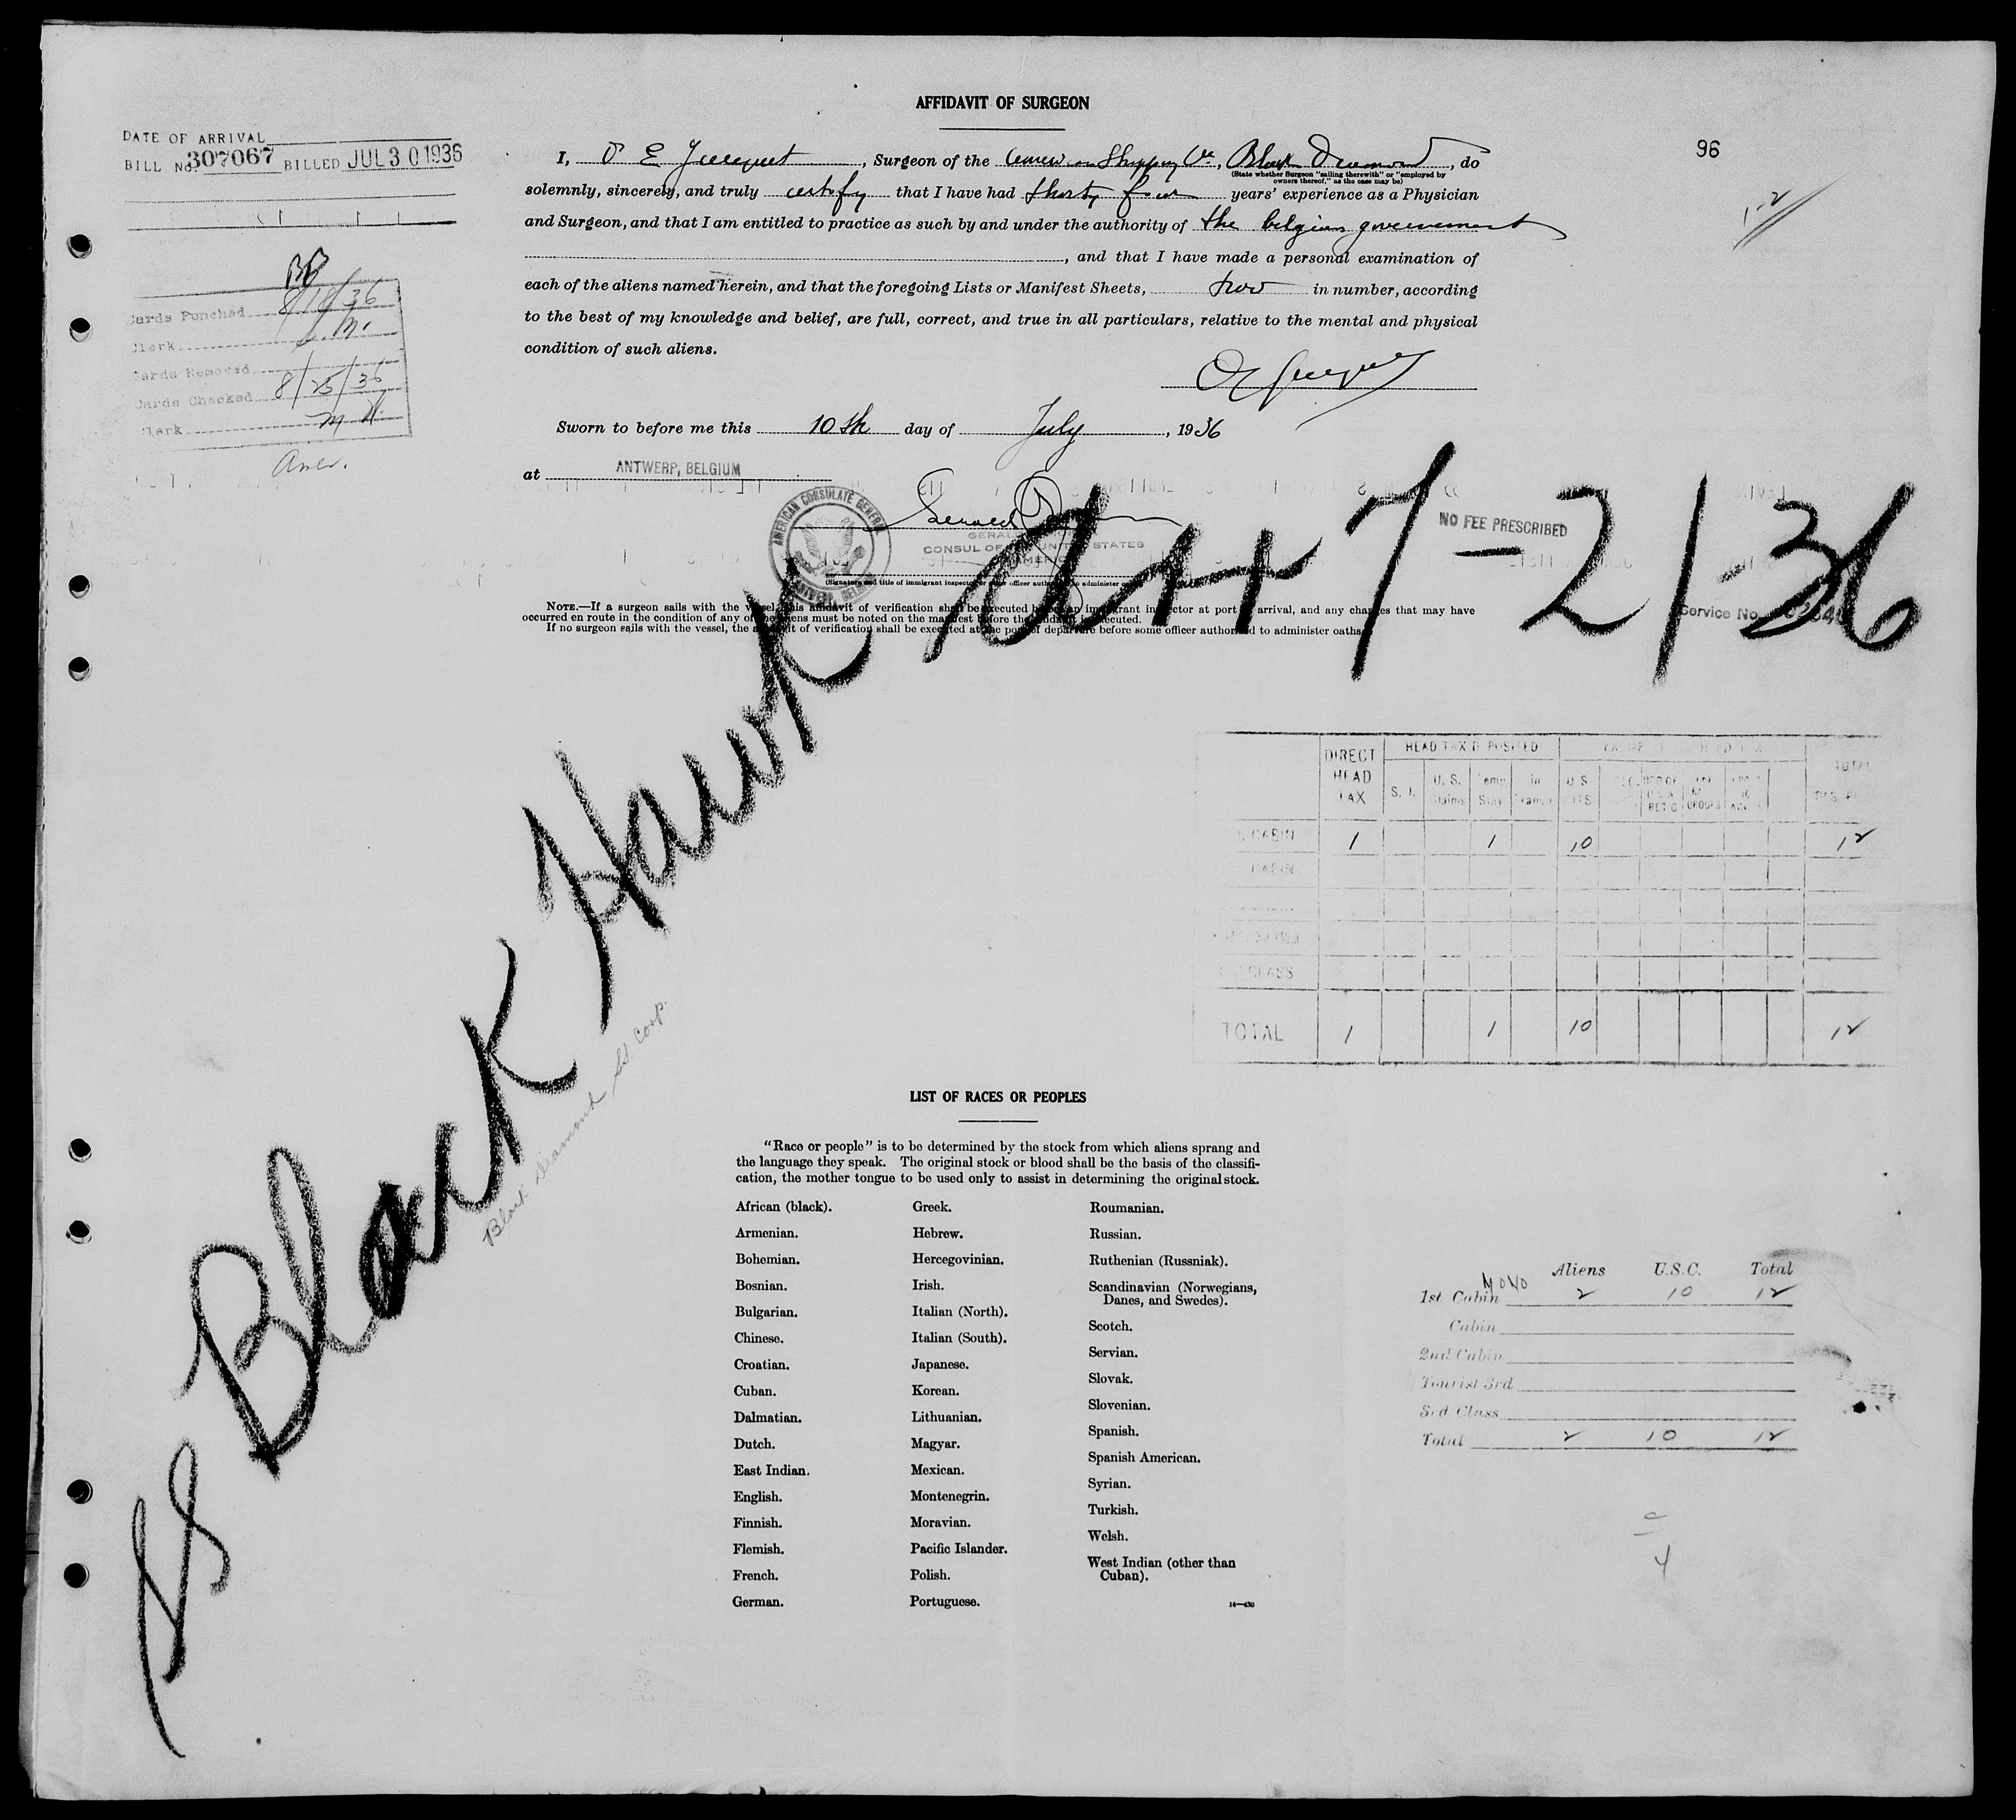 AFFIDAVIT OF SURGEON
DATE OF ARRIVAL
BILL No. 307067 BILLED JUL 30 1936
96
I, O E, Surgeon of the American Shipping Co., Black Diamond, do
(State whether Surgeon "sailing therewith" or "employed by
owners thereof," as the case may be)
solemnly, sincerely, and truly certify that I have had thirty four years' experience as a Physician
and Surgeon, and that I am entitled to practice as such by and under the authority of the belgian government
, and that I have made a personal examination of
each of the aliens named herein, and that the foregoing Lists or Manifest Sheets, two in number, according
to the best of my knowledge and belief, are full, correct, and true in all particulars, relative to the mental and physical
condition of such aliens.
Cards Punched 8/18/36
Clerk
Cards Removed
Cards Checked 8/25/36
Clerk
Sworn to before me this 10th day of July, 1936
at ANTWERP, BELGIUM
AMERICAN CONSULATE GENERAL
ANTWERP, BELGIUM
CONSUL OF THE UNITED STATES
NO FEE PRESCRIBED
Service No.
(Signature and title of immigrant inspector or other officer authorized to administer
NOTE.—If a surgeon sails with the vessel, this affidavit of verification shall be executed before an immigrant inspector at port of arrival, and any changes that may have
occurred en route in the condition of any of the aliens must be noted on the manifest before the affidavit is executed.
If no surgeon sails with the vessel, the affidavit of verification shall be executed at the port of departure before some officer authorized to administer oaths.
SS Black Hawk Arr 7-21-36
Black Diamond SS Corp.
DIRECT HEAD TAX
HEAD TAX DEPOSITED
S. I. U. S. Claims Temp Stay in Transit
TOTAL
CABIN 1 1 10 12
CABIN
CLASS
TOTAL 1 1 10 12
LIST OF RACES OR PEOPLES
"Race or people" is to be determined by the stock from which aliens sprang and
the language they speak. The original stock or blood shall be the basis of the classifi-
cation, the mother tongue to be used only to assist in determining the original stock.
African (black).
Armenian.
Bohemian.
Bosnian.
Bulgarian.
Chinese.
Croatian.
Cuban.
Dalmatian.
Dutch.
East Indian.
English.
Finnish.
Flemish.
French.
German.
Greek.
Hebrew.
Hercegovinian.
Irish.
Italian (North).
Italian (South).
Japanese.
Korean.
Lithuanian.
Magyar.
Mexican.
Montenegrin.
Moravian.
Pacific Islander.
Polish.
Portuguese.
Roumanian.
Russian.
Ruthenian (Russniak).
Scandinavian (Norwegians,
Danes, and Swedes).
Scotch.
Servian.
Slovak.
Slovenian.
Spanish.
Spanish American.
Syrian.
Turkish.
Welsh.
West Indian (other than
Cuban).
Aliens U.S.C. Total
1st Cabin 2 10 12
Cabin
2nd Cabin
Tourist 3rd
3rd Class
Total 2 10 12